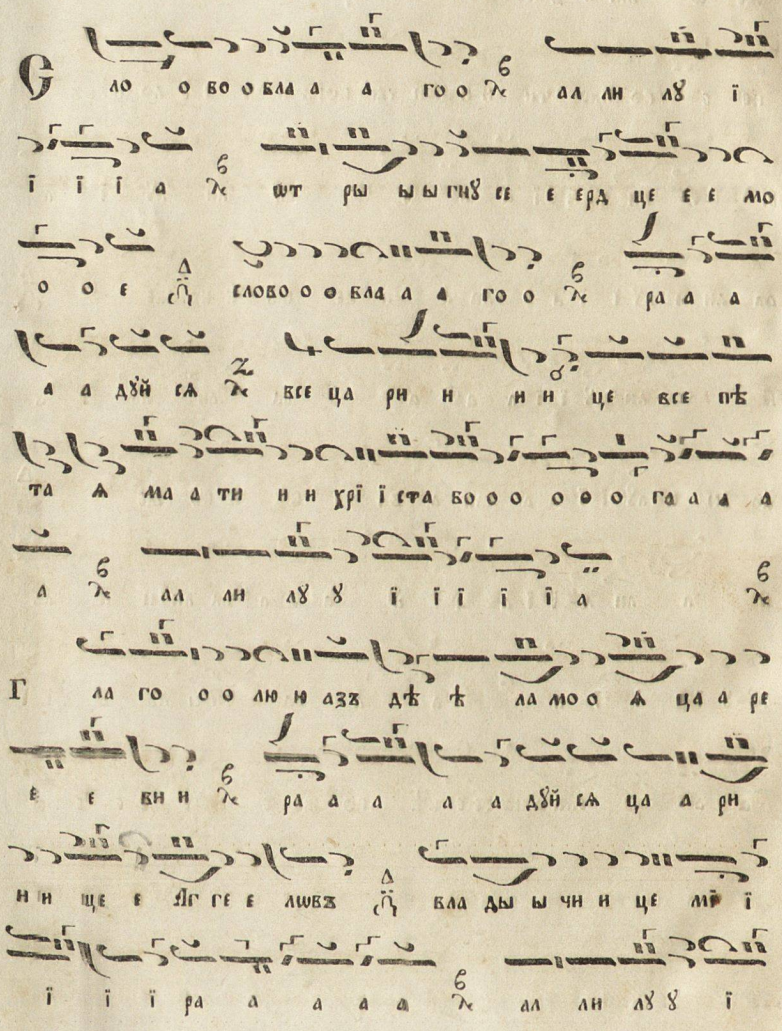 С ло о во о бла а а го о ал ли лꙋ ї
ї ї ї а ѿт ры ы ы гнꙋ се е ерд це е е мо
о о е слово о о бла а а го о ра а а
а а дꙋй сѧ все ца ри и и и це все пѣ
та ѧ ма а ти и и хрї ї ста бо о о о о о га а а а
а ал ли лꙋ ꙋ ї ї ї ї ї а
Г ла го о о лю ю азъ дѣ ѣ ла мо о ѧ ца а ре
е е ви и ра а а а а дꙋй сѧ ца а ри
и и це е Аг ге е лѡвъ вла ды ы чи и це мї ї
ї ї ї ра а а а а ал ли лꙋ ꙋ ї